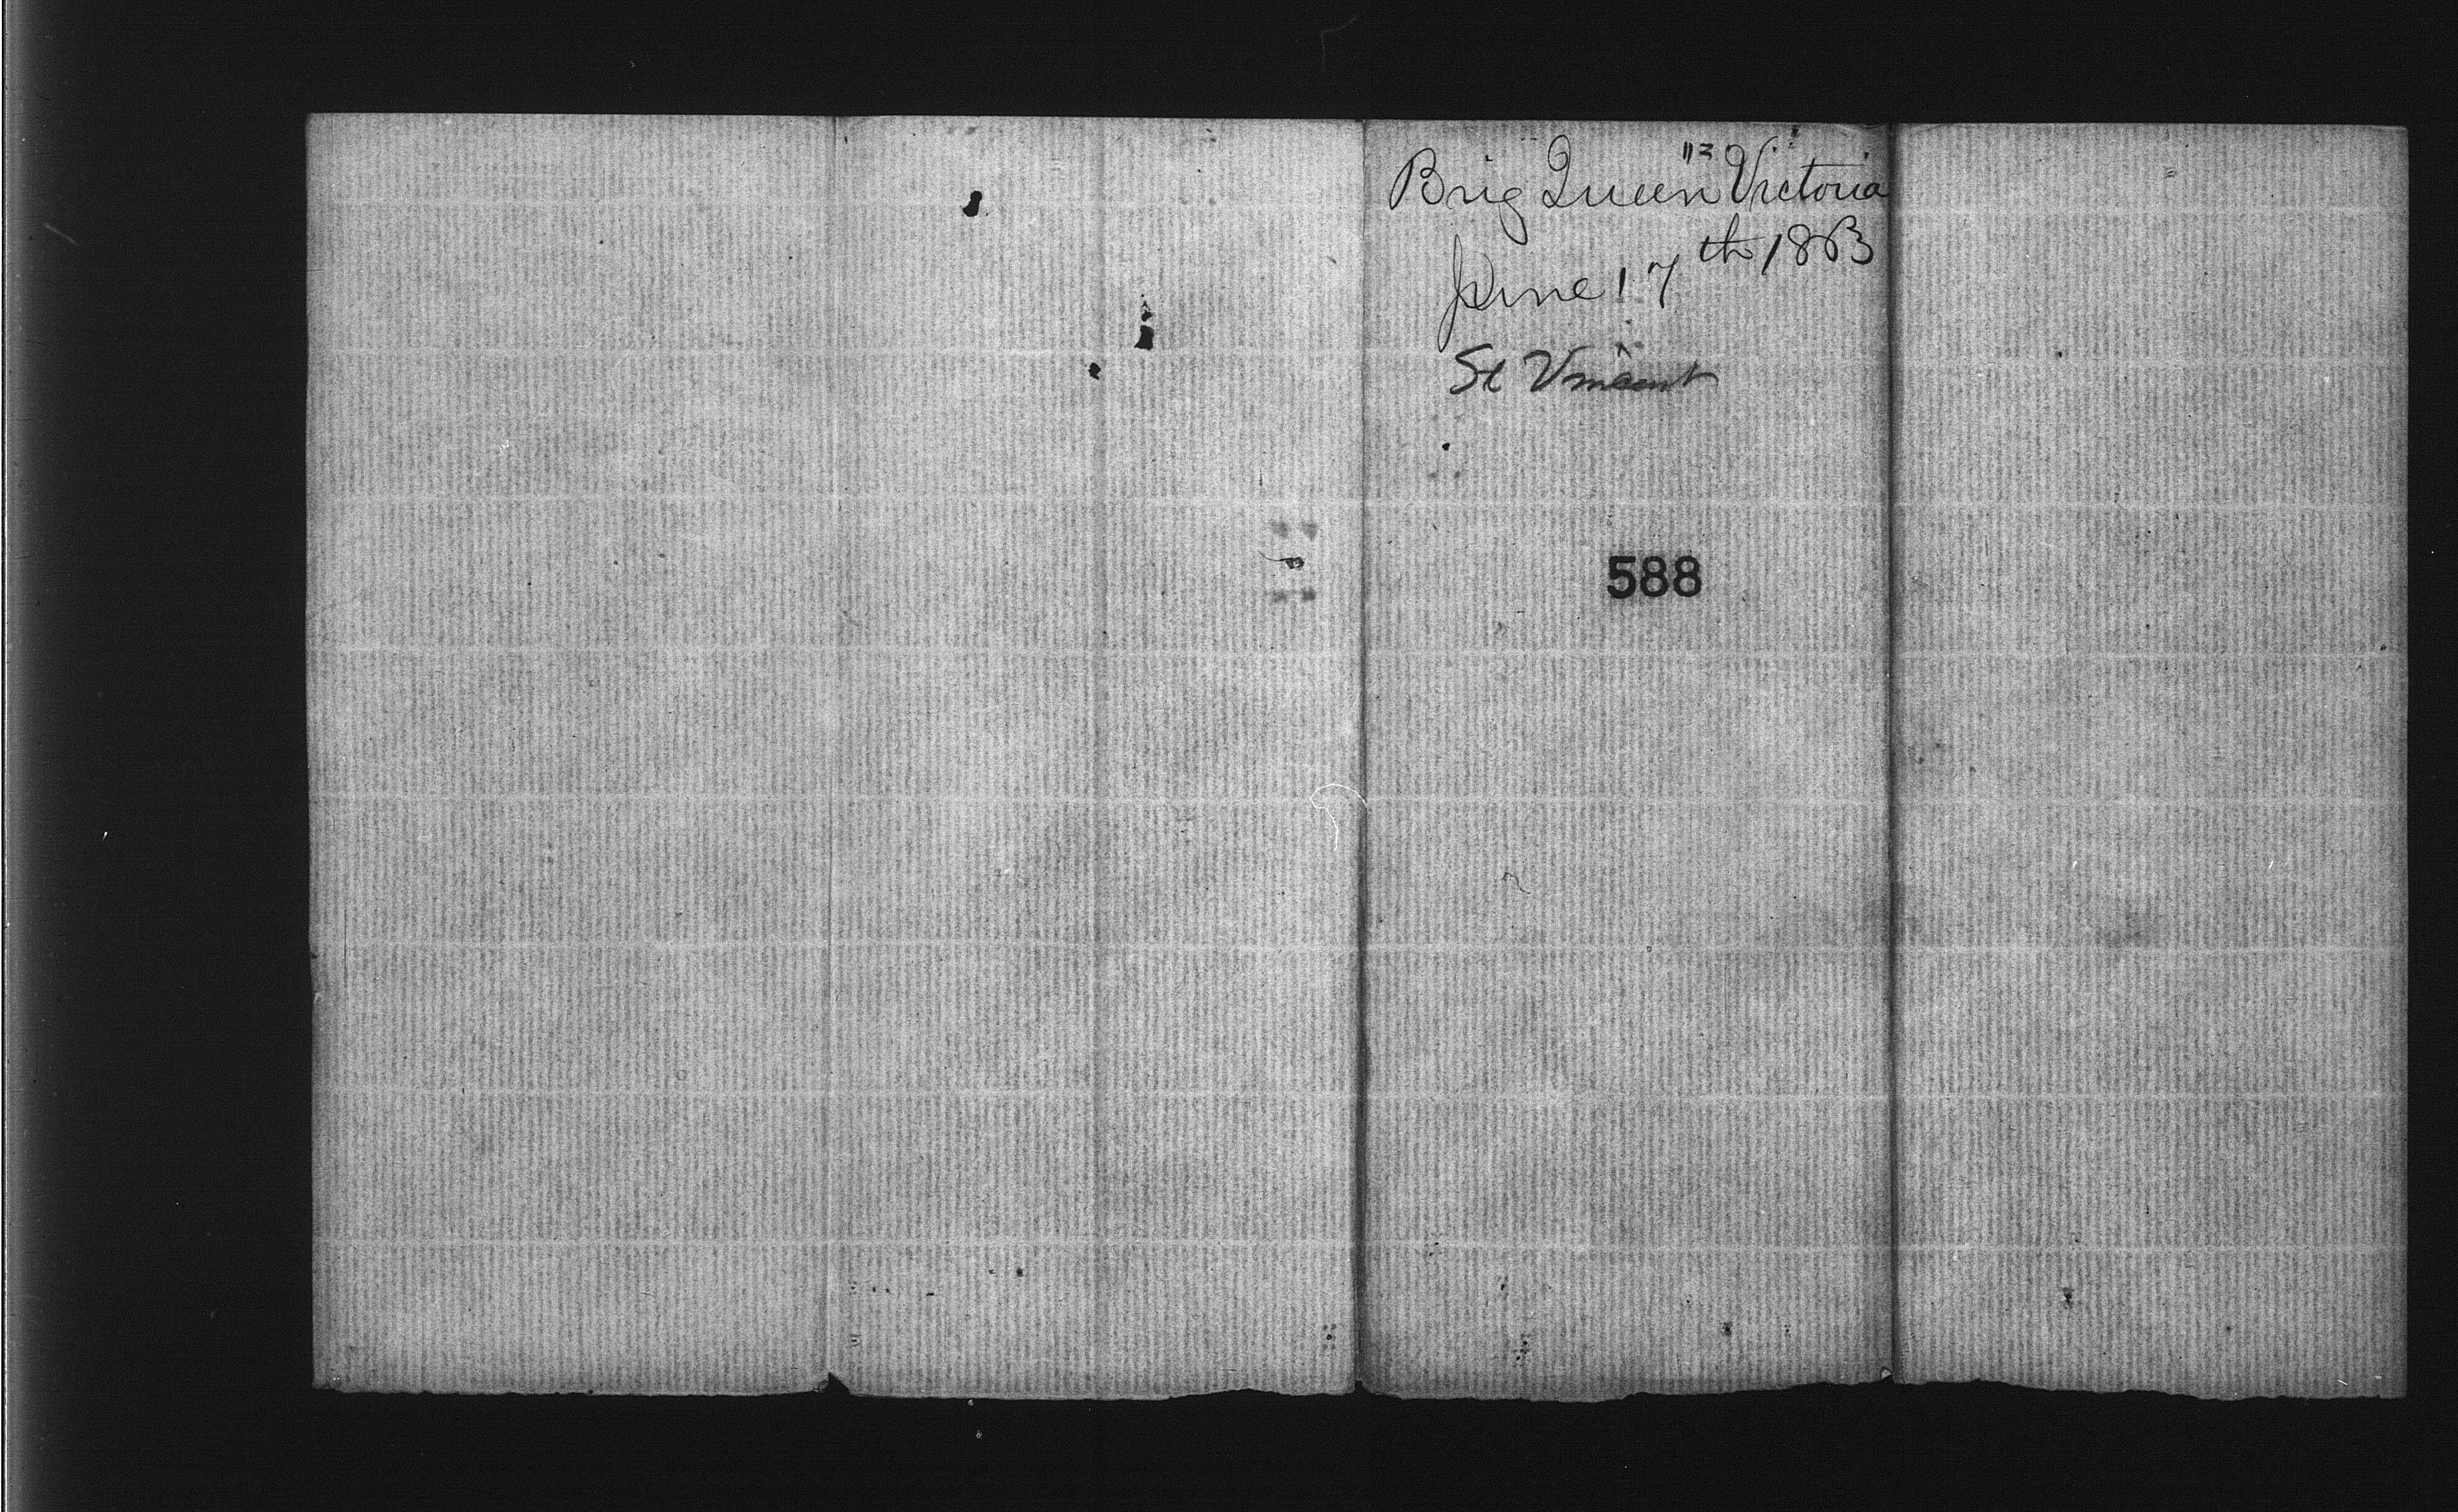 Brig Queen Victoria
June 17th 1863
St Vincent
588